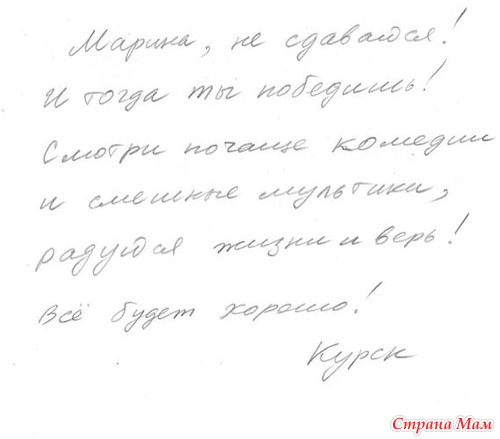 Марина, не сдавайся!
И тогда ты победишь!
Смотри почаще комедии
и смешные мультики,
радуйся жизни и верь!
Всё будет хорошо!
Курск
Страна Мам